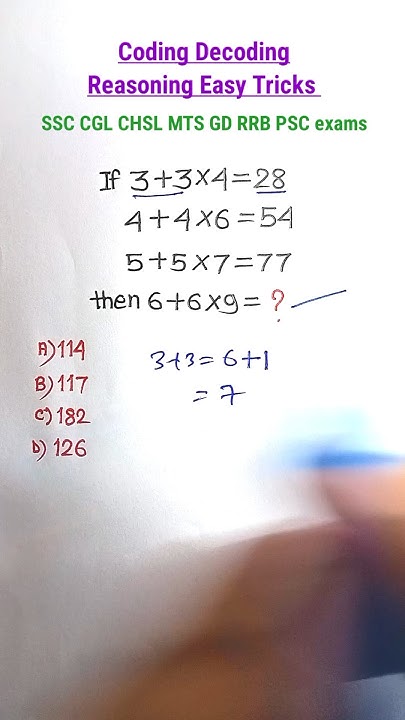 Coding Decoding
Reasoning Easy Tricks
SSC CGL CHSL MTS GD RRB PSC exams
If 3+3×4=28
4+4×6=54
5+5×7=77
then 6+6×9=?
A) 114
B) 117
C) 182
D) 126
3+3=6+1
=7